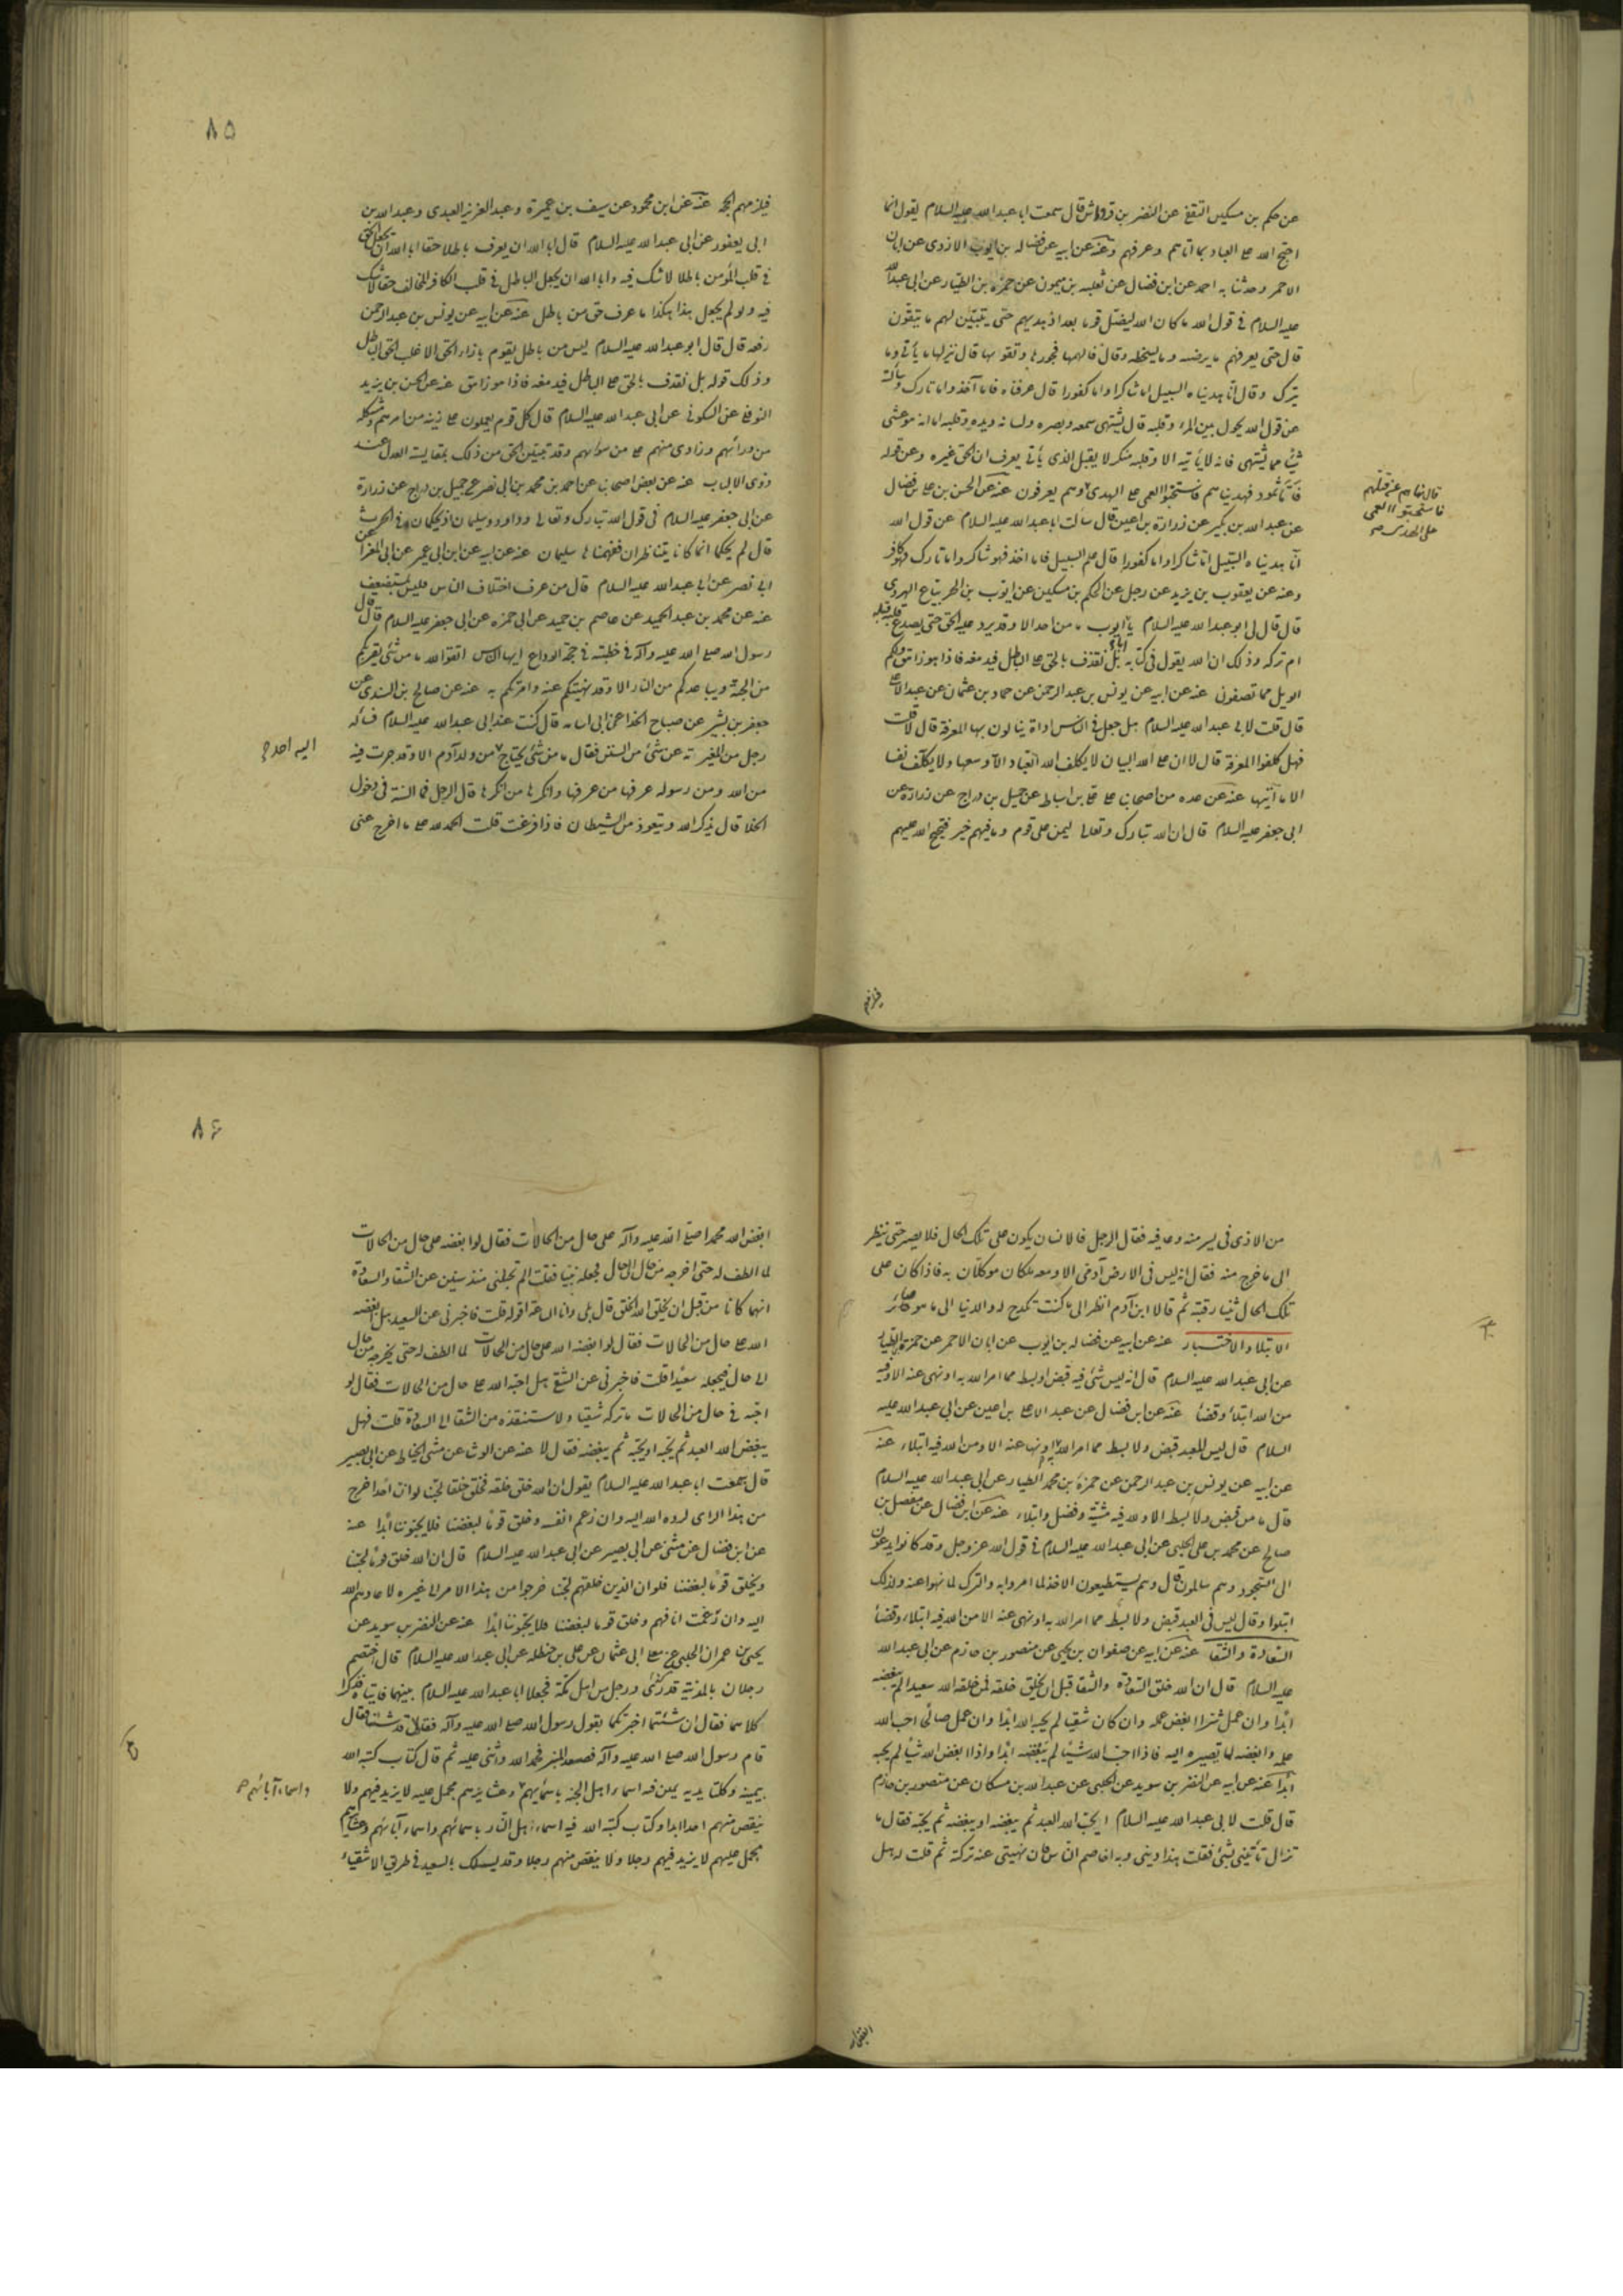 عن حكم بن مسكين الثقفى عن النضر بن قرواش قال سمعت ابا عبدالله عليه السلام يقول انما
احتج الله على العباد بما آتاهم وعرفهم وعنه عن ابيه عن فضاله بن ايوب الازدى عن ابان
الاحمر وحدثنا به احمد عن ابن فضال عن ثعلبه بن ميمون عن حمزه بن الطيار عن ابى عبدالله
عليه السلام فى قول الله ما كان الله ليضل قوما بعد اذ هديهم حتى يتبين لهم ما يتقون
قال حتى يعرفهم ما يرضيه وما يسخطه وقال فالهمها فجورها وتقويها قال بين لها ما يأتى وما
يترك وقال انا هديناه السبيل اما شاكرا واما كفورا قال عرفناه فاما آخذ واما تارك وسألته
عن قول الله يحول بين المرء وقلبه قال يشتهى سمعه وبصره ولسانه ويده وقلبه اما انه هو غشى
شيئا مما يشتهى فانه لا يأتيه الا وقلبه منكر لا يقبل الذى يأتى يعرف ان الحق غيره وعن قوله
فأما ثمود فهديناهم فاستحبوا العمى على الهدى وهم يعرفون عنه عن الحسن بن على بن فضال
عن عبدالله بن بكير عن زرارة بن اعين قال سألت ابا عبدالله عليه السلام عن قول الله
انا هديناه السبيل اما شاكرا واما كفورا قال علم السبيل فاما اخذ فهو شاكر واما تارك فهو كافر
وعنه عن يعقوب بن يزيد عن رجل عن الحكم بن مسكين عن ايوب بن الحر بياع الهروى
قال قال لى ابو عبدالله عليه السلام يا ايوب ما من احد الا وقد يرد عليه الحق حتى يصدع قلبه قبله
ام تركه وذلك ان الله يقول فى كتابه بل نقذف بالحق على الباطل فيدمغه فاذا هو زاهق ولكم
الويل مما تصفون عنه عن ابيه عن يونس بن عبد الرحمن عن حماد بن عثمان عن عبد الاعلى
قال قلت لابى عبدالله عليه السلام هل جعل فى الناس اداة ينالون بها المعرفة قال لا قلت
فهل كلفوا المعرفة قال لا ان على الله البيان لا يكلف الله العباد الا وسعها ولا يكلف نفسا
الا ما آتيها عنه عن عده من اصحابنا عن على بن اسباط عن جميل بن دراج عن زرارة عن
ابى جعفر عليه السلام قال ان الله تبارك وتعالى ليمن على قوم وما فيهم خير فيحتج الله عليهم
٨٥
فيلزمهم الحجة عنه عن ابن محبوب عن سيف بن عميرة وعبد العزيز العبدى وعبدالله بن
ابى يعفور عن ابى عبدالله عليه السلام قال ابا الله ان يعرف باطلا حقا ابا الله ان يجعل الحق
فى قلب المؤمن باطلا لا شك فيه وابا الله ان يجعل الباطل فى قلب الكافر المخالف حقا لا شك
فيه ولو لم يجعل هذا هكذا ما عرف حق من باطل عنه عن ابيه عن يونس بن عبد الرحمن
رفعه قال قال ابو عبدالله عليه السلام ليس من باطل يقوم بازاء الحق الا غلب الحق الباطل
وذلك قوله بل نقذف بالحق على الباطل فيدمغه فاذا هو زاهق عنه عن الحسن بن يزيد
النوفلى عن السكونى عن ابى عبدالله عليه السلام قال كل قوم يعملون على زينه من امرهم ومشكله
من ورائهم وزارى منهم على من سواهم وقد تبين الحق من ذلك بمقايسة العدل عند
ذوى الالباب عنه عن بعض اصحابنا عن احمد بن محمد بن ابى نصر عن جميل بن دراج عن زرارة
عن ابى جعفر عليه السلام فى قول الله تبارك وتعالى وداود وسليمان اذ يحكمان فى الحرث
قال لم يحكما انما كانا يتناظران ففهمناها سليمان عنه عن ابيه عن ابن ابى عمير عن ابى المغرا عن
ابى نصر عن ابى عبدالله عليه السلام قال من عرف اختلاف الناس فليس بمستضعف
عنه عن محمد بن عبد الحميد عن عاصم بن حميد عن ابى حمزه عن ابى جعفر عليه السلام قال قال
رسول الله صلى الله عليه وآله فى خطبته فى حجة الوداع ايها الناس اتقوا الله ما من شئ يقربكم
من الجنة ويباعدكم من النار الا وقد نهيتكم عنه وامرتكم به عنه عن صالح بن السندى عن
جعفر بن بشير عن صباح الحذا عن ابى اسامه قال كنت عند ابى عبدالله عليه السلام فسأله
رجل من المغيريه عن شئ من السنن فقال ما من شئ يحتاج من ولد آدم الا وقد جرت فيه
اليه احد
من الله ومن رسوله عرفها من عرفها وانكرها من انكرها قال الرجل فما السنة فى دخول
الخلا قال يذكر الله ويتعوذ من الشيطان فاذا فرغت قلت الحمد لله على ما اخرج عنى
من الاذى فى يسر منه وعافيه فقال الرجل فالانسان يكون على تلك الحال فلا يصبر حتى ينظر
الى ما خرج منه فقال انه ليس فى الارض آدمى الا ومعه ملكان موكلان به فاذا كان على
تلك الحال ثنيا رقبته ثم قالا ابن آدم انظر الى ما كنت تكدح له والدنيا الى ما هو صائر
الابتلاء والاختبار عنه عن ابيه عن فضاله بن ايوب عن ابان الاحمر عن حمزه الطيار
عن ابى عبدالله عليه السلام قال انه ليس شئ فيه قبض او بسط مما امر الله به او نهى عنه الا وفيه
من الله ابتلاء وقضا عنه عن ابن فضال عن عبد الاعلى بن اعين عن ابى عبدالله عليه
السلام قال ليس للعبد قبض ولا بسط مما امر الله به او نها عنه الا ومن الله فيه ابتلاء عنه
عن ابيه عن يونس بن عبد الرحمن عن حمزة بن محمد الطيار عن ابى عبدالله عليه السلام
قال ما من قبض ولا بسط الا ولله فيه مشية وفضل وابتلاء عنه عن ابن فضال عن مفضل بن
صالح عن محمد بن على الحلبى عن ابى عبدالله عليه السلام فى قول الله عز وجل وقد كانوا يدعون
الى السجود وهم سالمون قال وهم يستطيعون الاخذ لما امروا به والترك لما نهوا عنه ولذلك
ابتلوا وقال ليس فى العبد قبض ولا بسط مما امر الله به او نهى عنه الا من الله فيه ابتلاء وقضا
السعادة والشقا عنه عن ابيه عن صفوان بن يحيى عن منصور بن حازم عن ابى عبدالله
عليه السلام قال ان الله خلق السعادة والشقا قبل ان يخلق خلقه فمن خلقه الله سعيدا لم يبغضه
ابدا وان عمل شرا ابغض عمله وان كان شقيا لم يحبه الله ابدا وان عمل صالحا احب الله
عمله وابغضه لما يصيره اليه فاذا احب الله شيئا لم يبغضه ابدا واذا ابغض الله شيئا لم يحبه
ابدا عنه عن ابيه عن النضر بن سويد عن الحلبى عن عبدالله بن مسكان عن منصور بن حازم
قال قلت لابى عبدالله عليه السلام ايحب الله العبد ثم يبغضه او يبغضه ثم يحبه فقال ما
تزال تأتينى بشئ فقلت هذا دينى وبه اخاصم الناس فان نهيتنى عنه تركته ثم قلت له هل
٨٦
ابغض الله محمدا صلى الله عليه وآله على حال من الحالات فقال لو ابغضه على حال من الحالات
لما الطف له حتى اخرجه من حال الى حال فجعله نبيا فقلت الم تجبنى منذ سنين عن الشقا والسعادة
انهما كانا من قبل ان يخلق الله الخلق قال بلى وانا الساعة اقوله قلت فاخبرنى عن السعيد هل ابغضه
الله على حال من الحالات فقال لو ابغضه الله على حال من الحالات لما الطف له حتى يخرجه من حال
الى حال فيجعله سعيدا قلت فاخبرنى عن الشقى هل احبه الله على حال من الحالات فقال لو
احبه فى حال من الحالات ما تركه شقيا ولاستنقذه من الشقا الى السعادة قلت فهل
يبغض الله العبد ثم يحبه او يحبه ثم يبغضه فقال لا عنه عن الوشا عن مثنى الحناط عن ابى بصير
قال سمعت ابا عبدالله عليه السلام يقول ان الله خلق خلقه فخلق خلقا لحبنا لو ان احدا خرج
من هذا الراى لرده الله اليه وان زعم انفه وخلق قوما لبغضنا فلا يحبوننا ابدا عنه
عن ابن فضال عن مثنى عن ابى بصير عن ابى عبدالله عليه السلام قال ان الله خلق قوما لحبنا
وخلق قوما لبغضنا فلو ان الذين خلقهم لحبنا خرجوا من هذا الامر الى غيره لاعادهم الله
اليه وان رغمت انافهم وخلق قوما لبغضنا فلا يحبوننا ابدا عنه عن النضر بن سويد عن
يحيى بن عمران الحلبى عن معلى ابى عثمان عن على بن حنظله عن ابى عبدالله عليه السلام قال اختصم
رجلان بالمدينة قدرى ورجل من اهل مكة فجعلا ابا عبدالله عليه السلام بينهما فاتياه فذكرا
كلامهما فقال ان شئتما اخبرتكما بقول رسول الله صلى الله عليه وآله فقالا قد شئنا فقال
قام رسول الله صلى الله عليه وآله فصعد المنبر فحمد الله واثنى عليه ثم قال كتاب كتبه الله
بيمينه وكلتا يديه يمين فيه اسماء اهل الجنة باسمائهم وعشايرهم مجمل عليه لا يزيد فيهم ولا
واسماء آبائهم
ينقص منهم احد ابدا وكتاب كتبه الله فيه اسماء اهل النار باسمائهم واسماء آبائهم وعشايرهم
مجمل عليهم لا يزيد فيهم رجلا ولا ينقص منهم رجلا وقد يسلك بالسعيد فى طريق الاشقياء